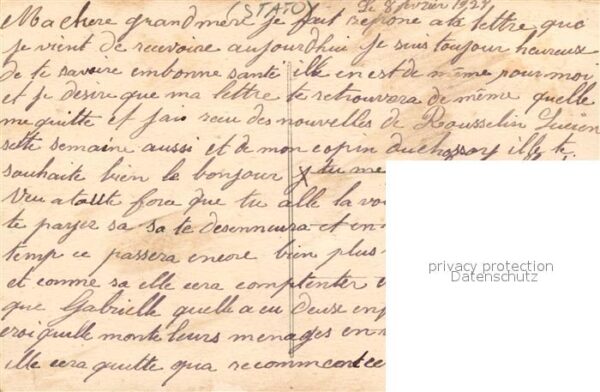 (STATO) le 8 fevrier 1924
Ma chere grand mere je fait reprone a ta lettre que
je vient de recevoire aujourdhui je suis toujour heureux
de te savoire enbonne santé ille en est de même pour moi
et je desire que ma lettre te retrouvera de même quelle
me quitte et j'ais recu des nouvelles de Rousselin Lucien
sette semaine aussi et de mon copin duchossoy ille te
souhaite bien le bonjour x tu me
Vru a tasste fore que tu alle la voi
te payer sa sa te desennuira et en
temp ce passera encore bien plus
et comme sa elle cera comptenter
que Gabrielle quelle a eu deuse enf
croi quille monte leurs menages en
ille cera quitte qua recommcent ce
privacy protection
Datenschutz